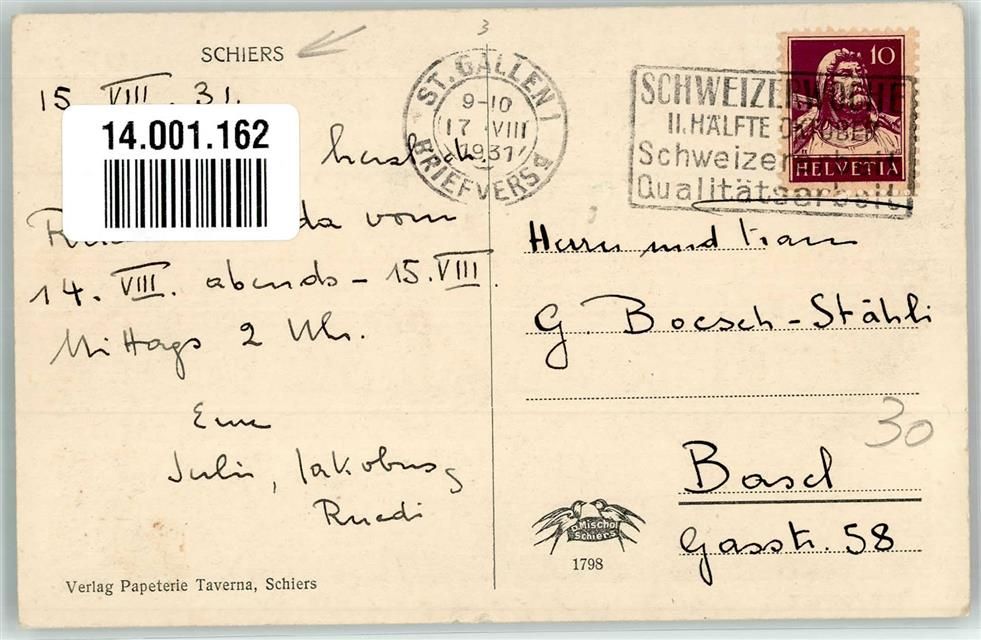 SCHIERS
15. VIII. 31.
14.001.162
da vom
14. VIII. abends – 15. VIII.
Mittags 2 Uhr.
Eure
Julie, Jakobus,
Ruedi
Verlag Papeterie Taverna, Schiers
3
ST. GALLEN 1
9-10
17 VIII
1931
BRIEFVERS.
SCHWEIZERWOCHE
II. HÄLFTE OKTOBER
Schweizerarbeit
Qualitätsarbeit
10
HELVETIA
Herrn und Frau
G. Boesch-Stähli
30
Basel
Gasstr. 58
D. Mischol
Schiers
1798